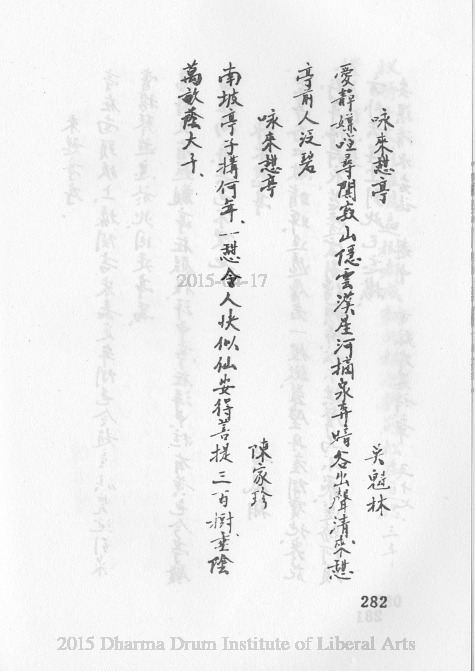 咏來憇亭
吳魁林
愛靜嫌喧尋閒寂山隱雲漢星河摘泉奔暗谷出聲清來憇
亭前人沒碧
咏來憇亭
陳家珍
南坡亭子搆何年、一憇令人快似仙安得菩提三百樹、垂陰
萬畝蔭大千、
2015-04-17
282
2015 Dharma Drum Institute of Liberal Arts